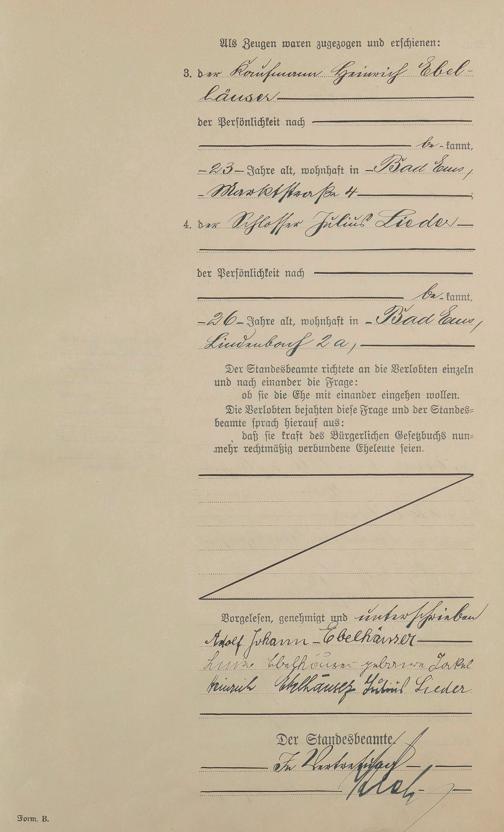 Als Zeugen waren zugezogen und erschienen:
3. der Kaufmann Heinrich Ebel-
häuser
der Persönlichkeit nach
be-kannt,
-23- Jahre alt, wohnhaft in - Bad Ems,
- Marktstraße 4
4. der Schlosser Julius Lieder
der Persönlichkeit nach
be-kannt,
-26- Jahre alt, wohnhaft in - Bad Ems,
Lindenbach 2a,
Der Standesbeamte richtete an die Verlobten einzeln
und nach einander die Frage:
ob sie die Ehe mit einander eingehen wollen.
Die Verlobten bejahten diese Frage und der Standes-
beamte sprach hierauf aus:
daß sie kraft des Bürgerlichen Gesetzbuchs nun-
mehr rechtmäßig verbundene Eheleute seien.
Vorgelesen, genehmigt und unterschrieben
Adolf Johann Ebelhäuser
Ebelhäuser geborene
Heinrich Ebelhäuser Julius Lieder
Der Standesbeamte
In Vertretung
Form. B.